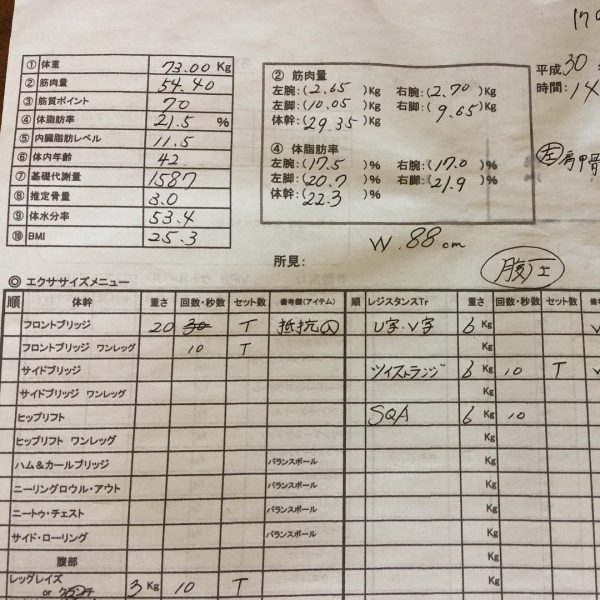 ① 体重 73.00 Kg
② 筋肉量 54.40
③ 筋質ポイント 70
④ 体脂肪率 21.5 %
⑤ 内臓脂肪レベル 11.5
⑥ 体内年齢 42
⑦ 基礎代謝量 1587
⑧ 推定骨量 3.0
⑨ 体水分率 53.4
⑩ BMI 25.3
② 筋肉量
左腕:(2.65)Kg 右腕:(2.70)Kg
左脚:(10.05)Kg 右脚:(9.65)Kg
体幹:(29.35)Kg
④ 体脂肪率
左腕:(17.5)% 右腕:(17.0)%
左脚:(20.7)% 右脚:(21.9)%
体幹:(22.3)%
平成30
時間:14
左 肩甲骨
W.88cm
所見:
腹圧
◎ エクササイズメニュー
順 体幹 重さ 回数・秒数 セット数 備考欄(アイテム) 順 レジスタンスTr 重さ 回数・秒数 セット数
フロントブリッジ 20 30 T 抵抗入 U字・V字 6 Kg
フロントブリッジ ワンレッグ 10 T Kg
サイドブリッジ ツイストランジ 6 Kg 10 T
サイドブリッジ ワンレッグ Kg
ヒップリフト SQA 6 Kg 10
ヒップリフト ワンレッグ Kg
ハム&カールブリッジ バランスボール Kg
ニーリングロウル・アウト バランスボール Kg
ニートゥ・チェスト バランスボール Kg
サイド・ローリング バランスボール Kg
腹部 Kg
レッグレイズ 3 Kg 10 T Kg
or クランチ